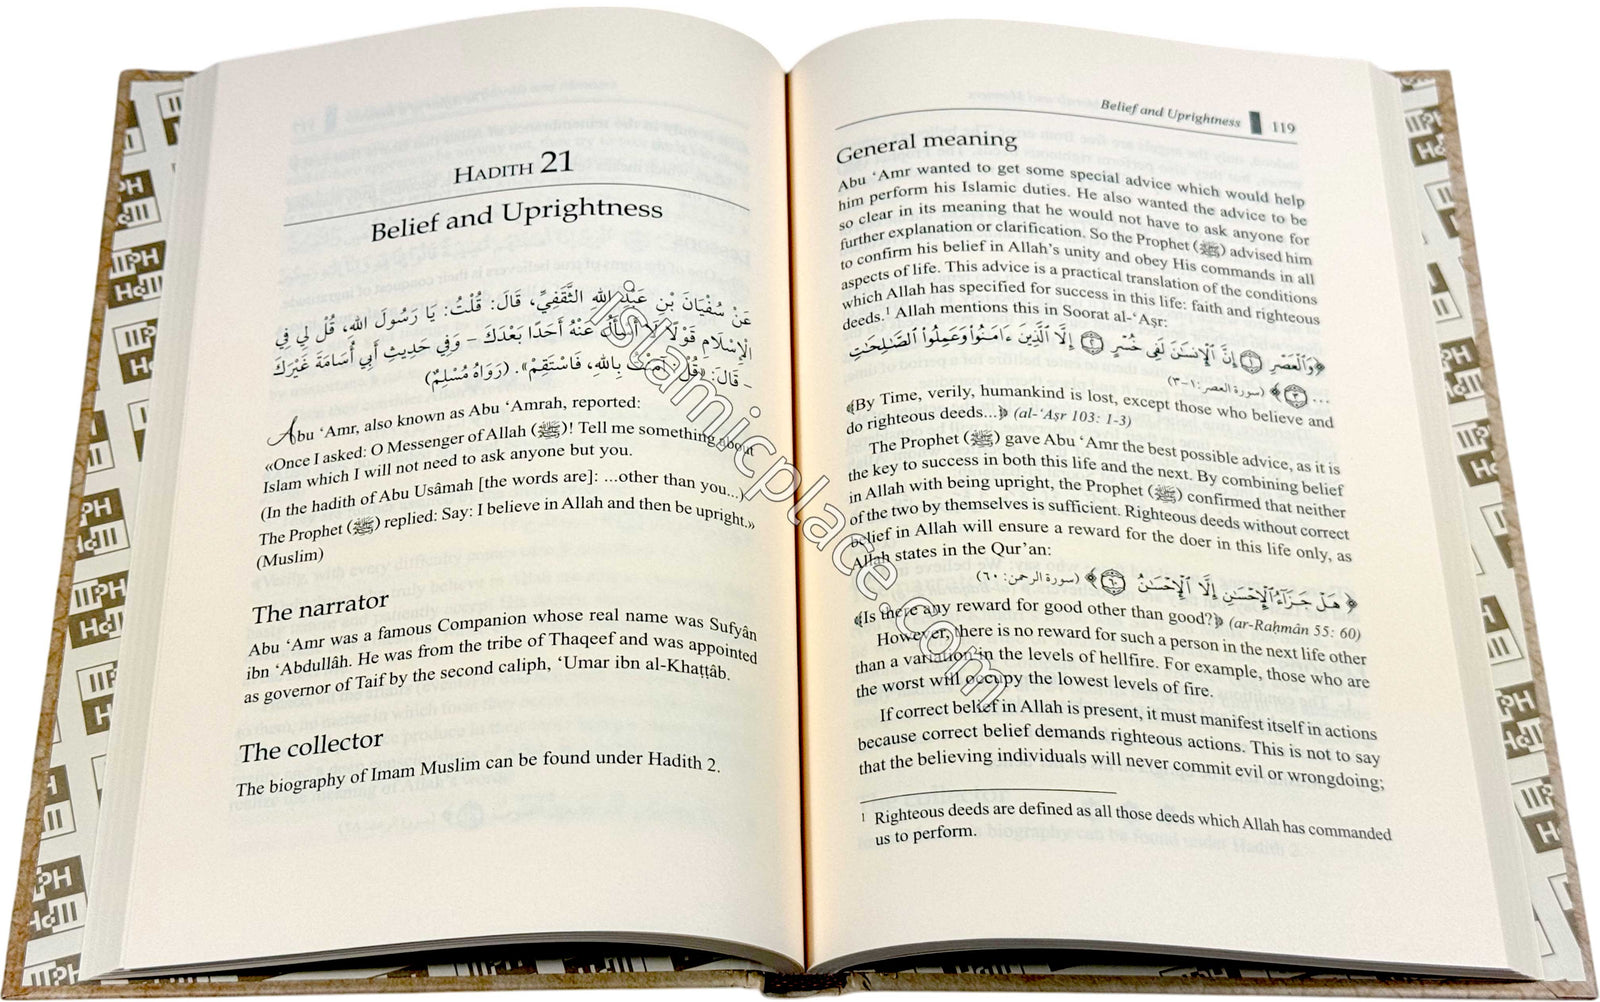 HADITH 21
Belief and Uprightness
عَنْ سُفْيَانَ بْنِ عَبْدِ اللهِ الثَّقَفِيِّ، قَالَ: قُلْتُ: يَا رَسُولَ اللهِ، قُلْ لِي فِي
الْإِسْلَامِ قَوْلًا لَا أَسْأَلُ عَنْهُ أَحَدًا بَعْدَكَ – وَفِي حَدِيثِ أَبِي أُسَامَةَ غَيْرَكَ
– قَالَ: «قُلْ: آمَنْتُ بِاللهِ، فَاسْتَقِمْ». (رَوَاهُ مُسْلِمٌ)
Abu ‘Amr, also known as Abu ‘Amrah, reported:
«Once I asked: O Messenger of Allah (ﷺ)! Tell me something about
Islam which I will not need to ask anyone but you.
(In the hadith of Abu Usâmah [the words are]: ...other than you...)
The Prophet (ﷺ) replied: Say: I believe in Allah and then be upright.»
(Muslim)
The narrator
Abu ‘Amr was a famous Companion whose real name was Sufyân
ibn ‘Abdullâh. He was from the tribe of Thaqeef and was appointed
as governor of Taif by the second caliph, ‘Umar ibn al-Khaṭṭâb.
The collector
The biography of Imam Muslim can be found under Hadith 2.
Belief and Uprightness 119
General meaning
Abu ‘Amr wanted to get some special advice which would help
him perform his Islamic duties. He also wanted the advice to be
so clear in its meaning that he would not have to ask anyone for
further explanation or clarification. So the Prophet (ﷺ) advised him
to confirm his belief in Allah’s unity and obey His commands in all
aspects of life. This advice is a practical translation of the conditions
which Allah has specified for success in this life: faith and righteous
deeds.¹ Allah mentions this in Soorat al-‘Aṣr:
﴿وَٱلْعَصْرِ ۝١ إِنَّ ٱلْإِنسَـٰنَ لَفِى خُسْرٍ ۝٢ إِلَّا ٱلَّذِينَ ءَامَنُوا۟ وَعَمِلُوا۟ ٱلصَّـٰلِحَـٰتِ
... ۝٣﴾ (سورة العصر: ١-٣)
﴾By Time, verily, humankind is lost, except those who believe and
do righteous deeds...﴿ (al-‘Aṣr 103: 1-3)
The Prophet (ﷺ) gave Abu ‘Amr the best possible advice, as it is
the key to success in both this life and the next. By combining belief
in Allah with being upright, the Prophet (ﷺ) confirmed that neither
of the two by themselves is sufficient. Righteous deeds without correct
belief in Allah will ensure a reward for the doer in this life only, as
Allah states in the Qur’an:
﴿هَلْ جَزَآءُ ٱلْإِحْسَـٰنِ إِلَّا ٱلْإِحْسَـٰنُ ۝٦٠﴾ (سورة الرحمن: ٦٠)
﴾Is there any reward for good other than good?﴿ (ar-Raḥmân 55: 60)
However, there is no reward for such a person in the next life other
than a variation in the levels of hellfire. For example, those who are
the worst will occupy the lowest levels of fire.
If correct belief in Allah is present, it must manifest itself in actions
because correct belief demands righteous actions. This is not to say
that the believing individuals will never commit evil or wrongdoing;
¹ Righteous deeds are defined as all those deeds which Allah has commanded
us to perform.
islamicplace.com
IIPH